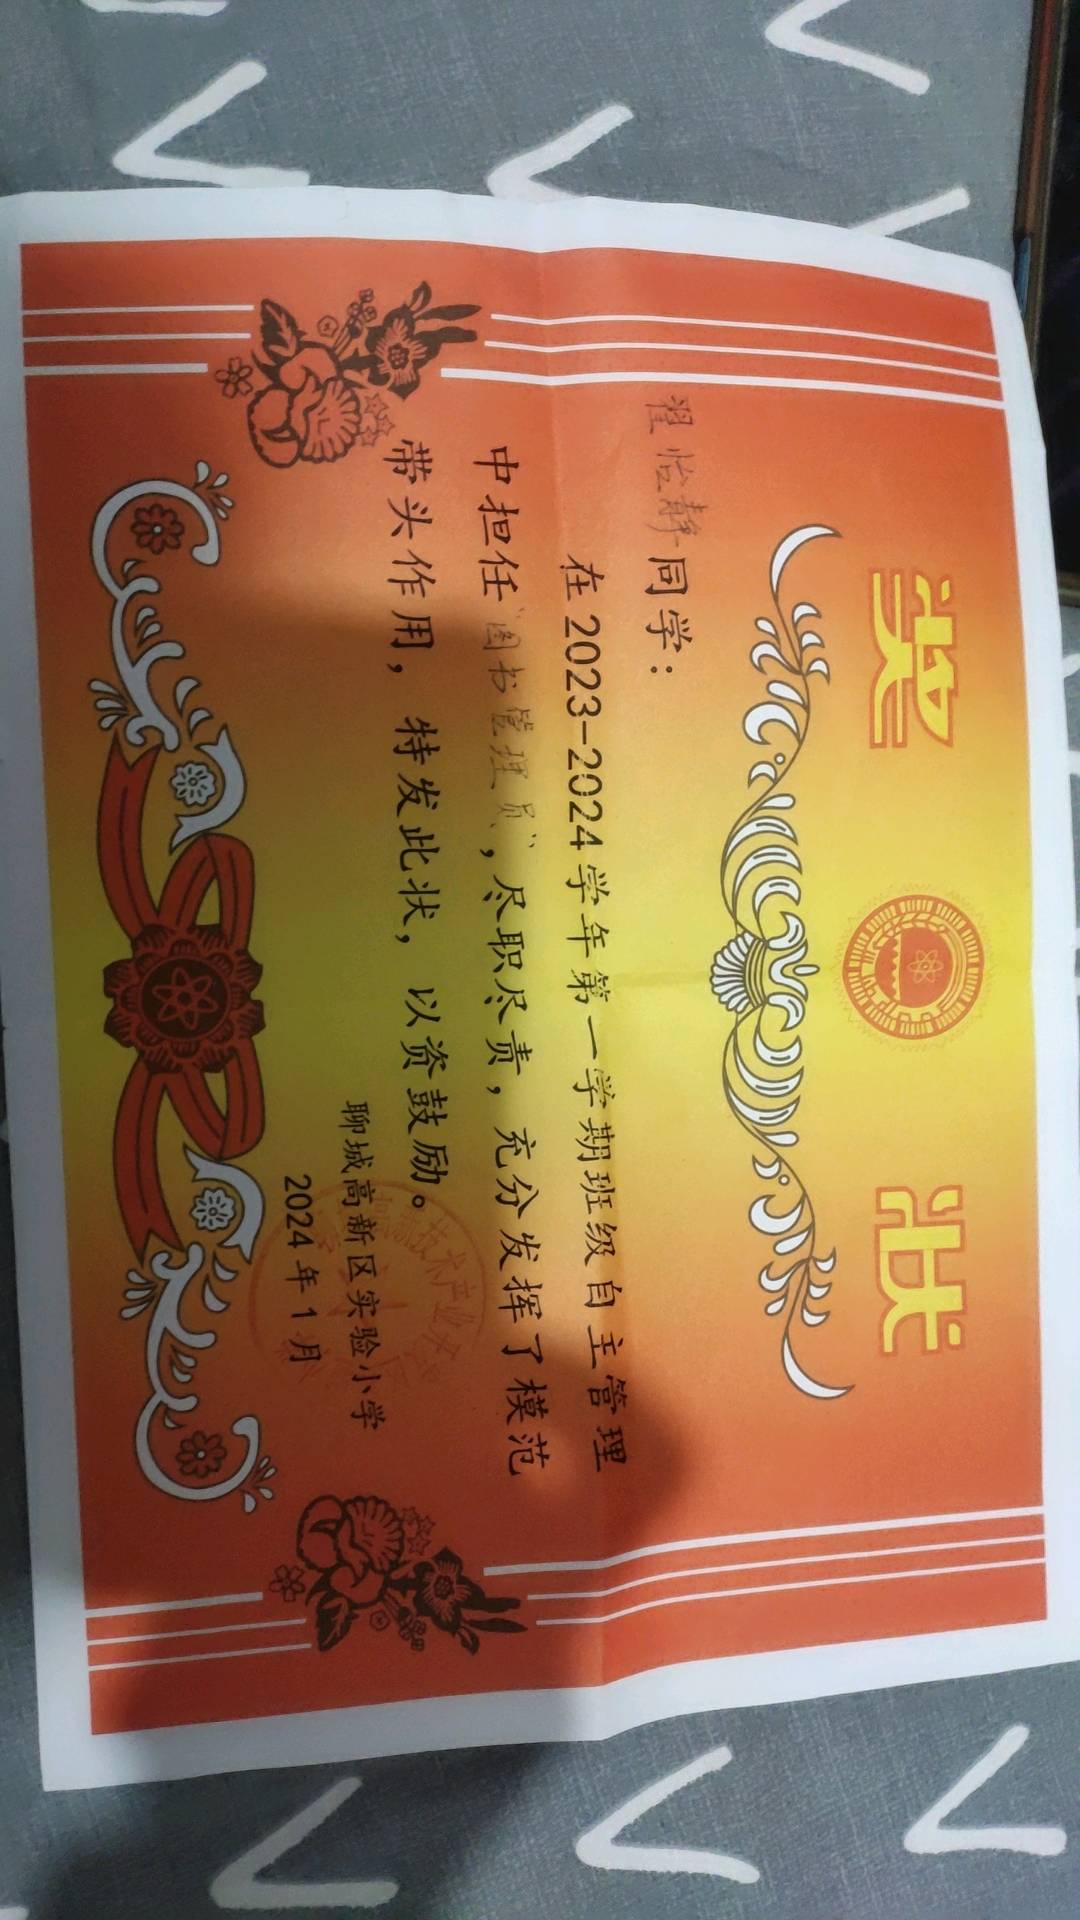 奖 状
翟怡静同学：
在2023-2024学年第一学期班级自主管理
中担任“图书管理员”，尽职尽责，充分发挥了模范
带头作用，特发此状，以资鼓励。
聊城高新区实验小学
2024年1月
高新技术产业开发